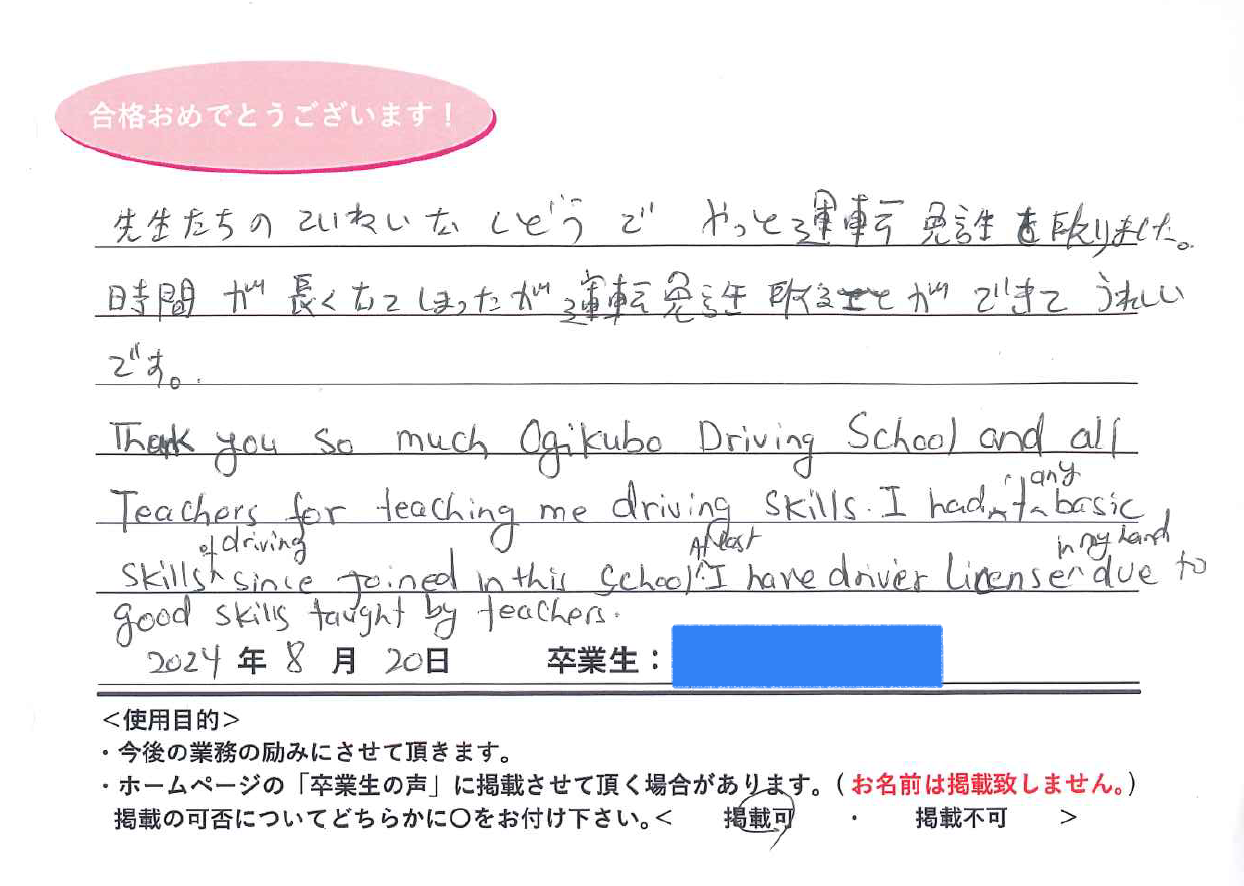 合格おめでとうございます！
先生たちの ていねいな しどう で やっと運転免許証を取りました。
時間 が 長くなてしまったが運転免許証 取ることができて うれしい
です。
Thank you so much Ogikubo Driving School and all
Teachers for teaching me driving skills. I hadn't any basic
skills of driving since joined in this school. At last I have driver license in my hand due to
good skills taught by teachers.
2024 年 8 月 20日 卒業生：
＜使用目的＞
・今後の業務の励みにさせて頂きます。
・ホームページの「卒業生の声」に掲載させて頂く場合があります。（お名前は掲載致しません。）
掲載の可否についてどちらかに〇をお付け下さい。＜ 掲載可 ・ 掲載不可 ＞